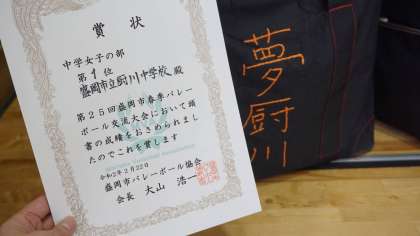 賞状
中学女子の部
第1位
盛岡市立厨川中学校 殿
第25回盛岡市春季バレー
ボール交流大会において頭
書の成績をおさめられまし
たのでこれを賞します
令和2年2月22日
盛岡市バレーボール協会
会長 大山 浩一
夢
厨
川